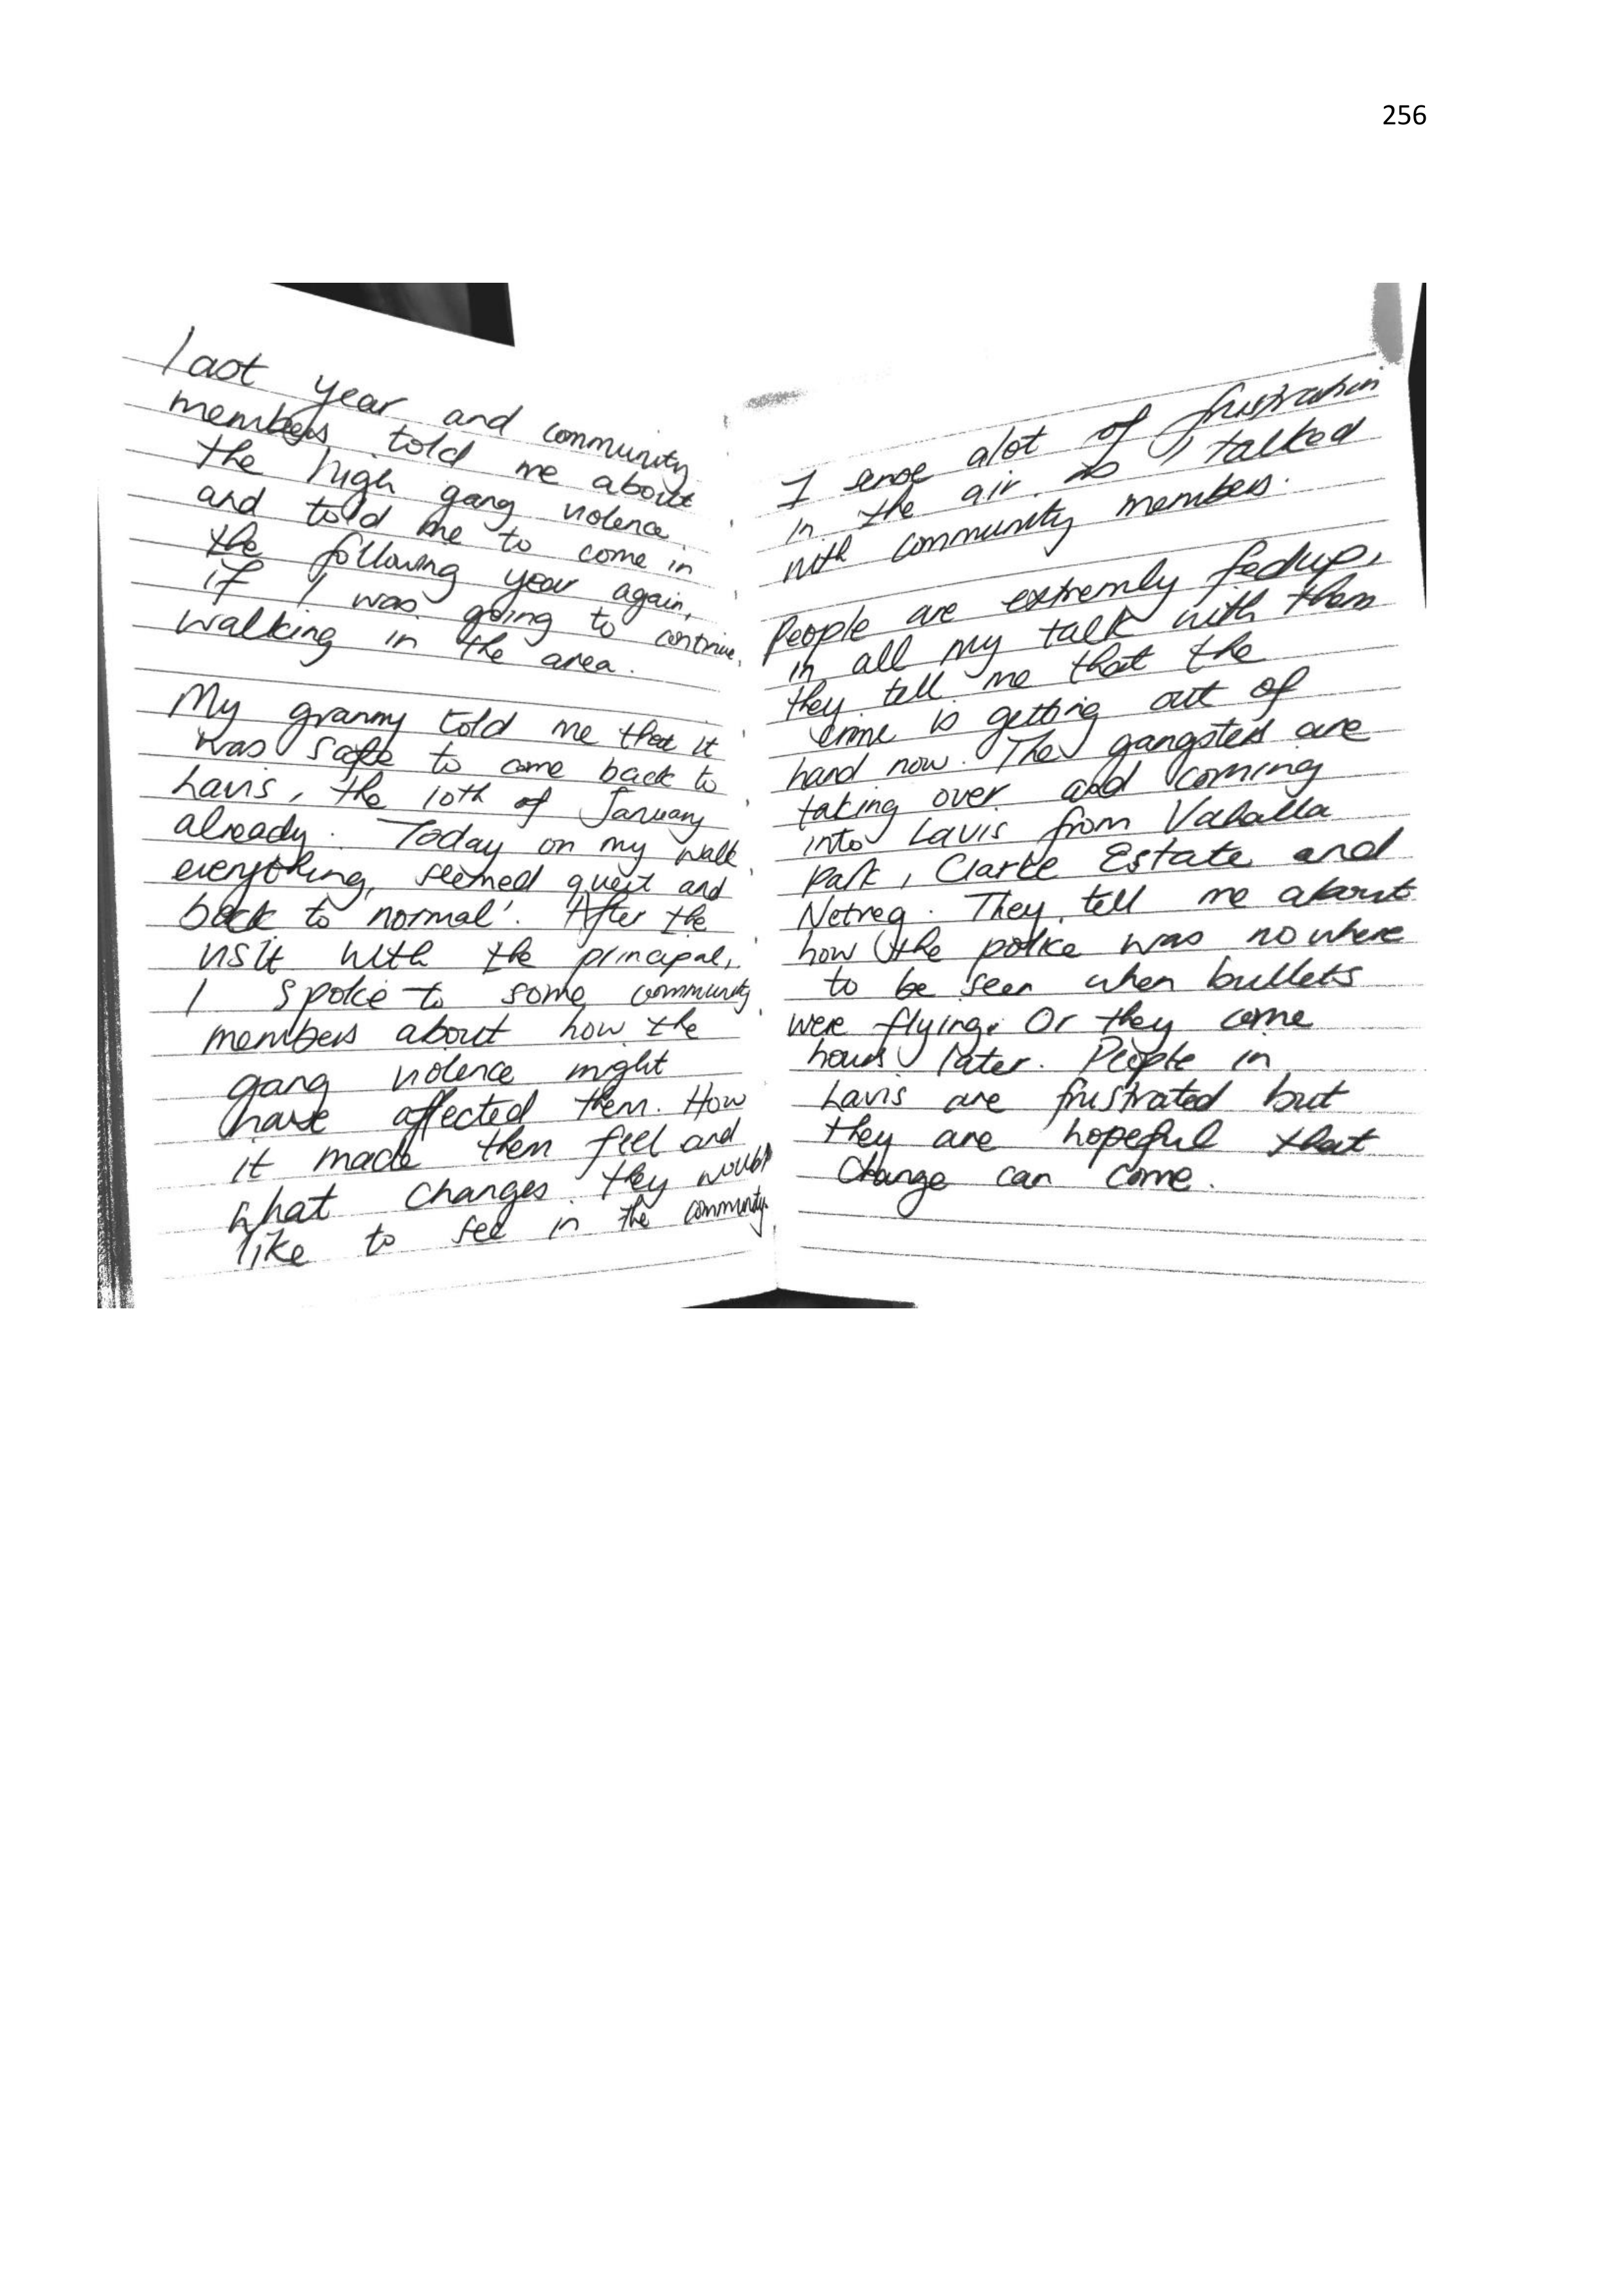 256
last year and community
members told me about
the high gang violence
and told me to come in
the following year again,
if I was going to continue
walking in the area.
My granny told me that it
was safe to come back to
Lavis, the 10th of January
already. Today on my walk
everything, seemed queit and
back to normal'. After the
visit with the principal,
I spoke to some community
members about how the
gang violence might
have affected them. How
it made them feel and
what changes they would
like to see in the community.
I sense alot of frustration
in the air as I talked
with community members.
People are extremly fedup,
in all my talk with them
they tell me that the
crime is getting out of
hand now. The gangsters are
taking over and coming
into Lavis from Valhalla
park, Clarke Estate and
Netreg. They tell me about
how the police was nowhere
to be seen when bullets
were flying. Or they come
hours later. People in
Lavis are frustrated but
they are hopeful that
change can come.